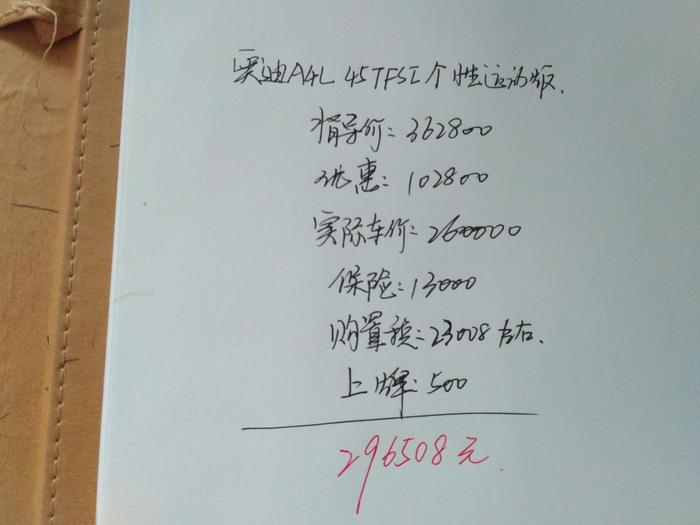 奥迪A4L 45TFSI个性运动版.
指导价: 362800
优惠: 102800
实际车价: 260000
保险: 13000
购置税: 23008左右.
上牌: 500
296508元.